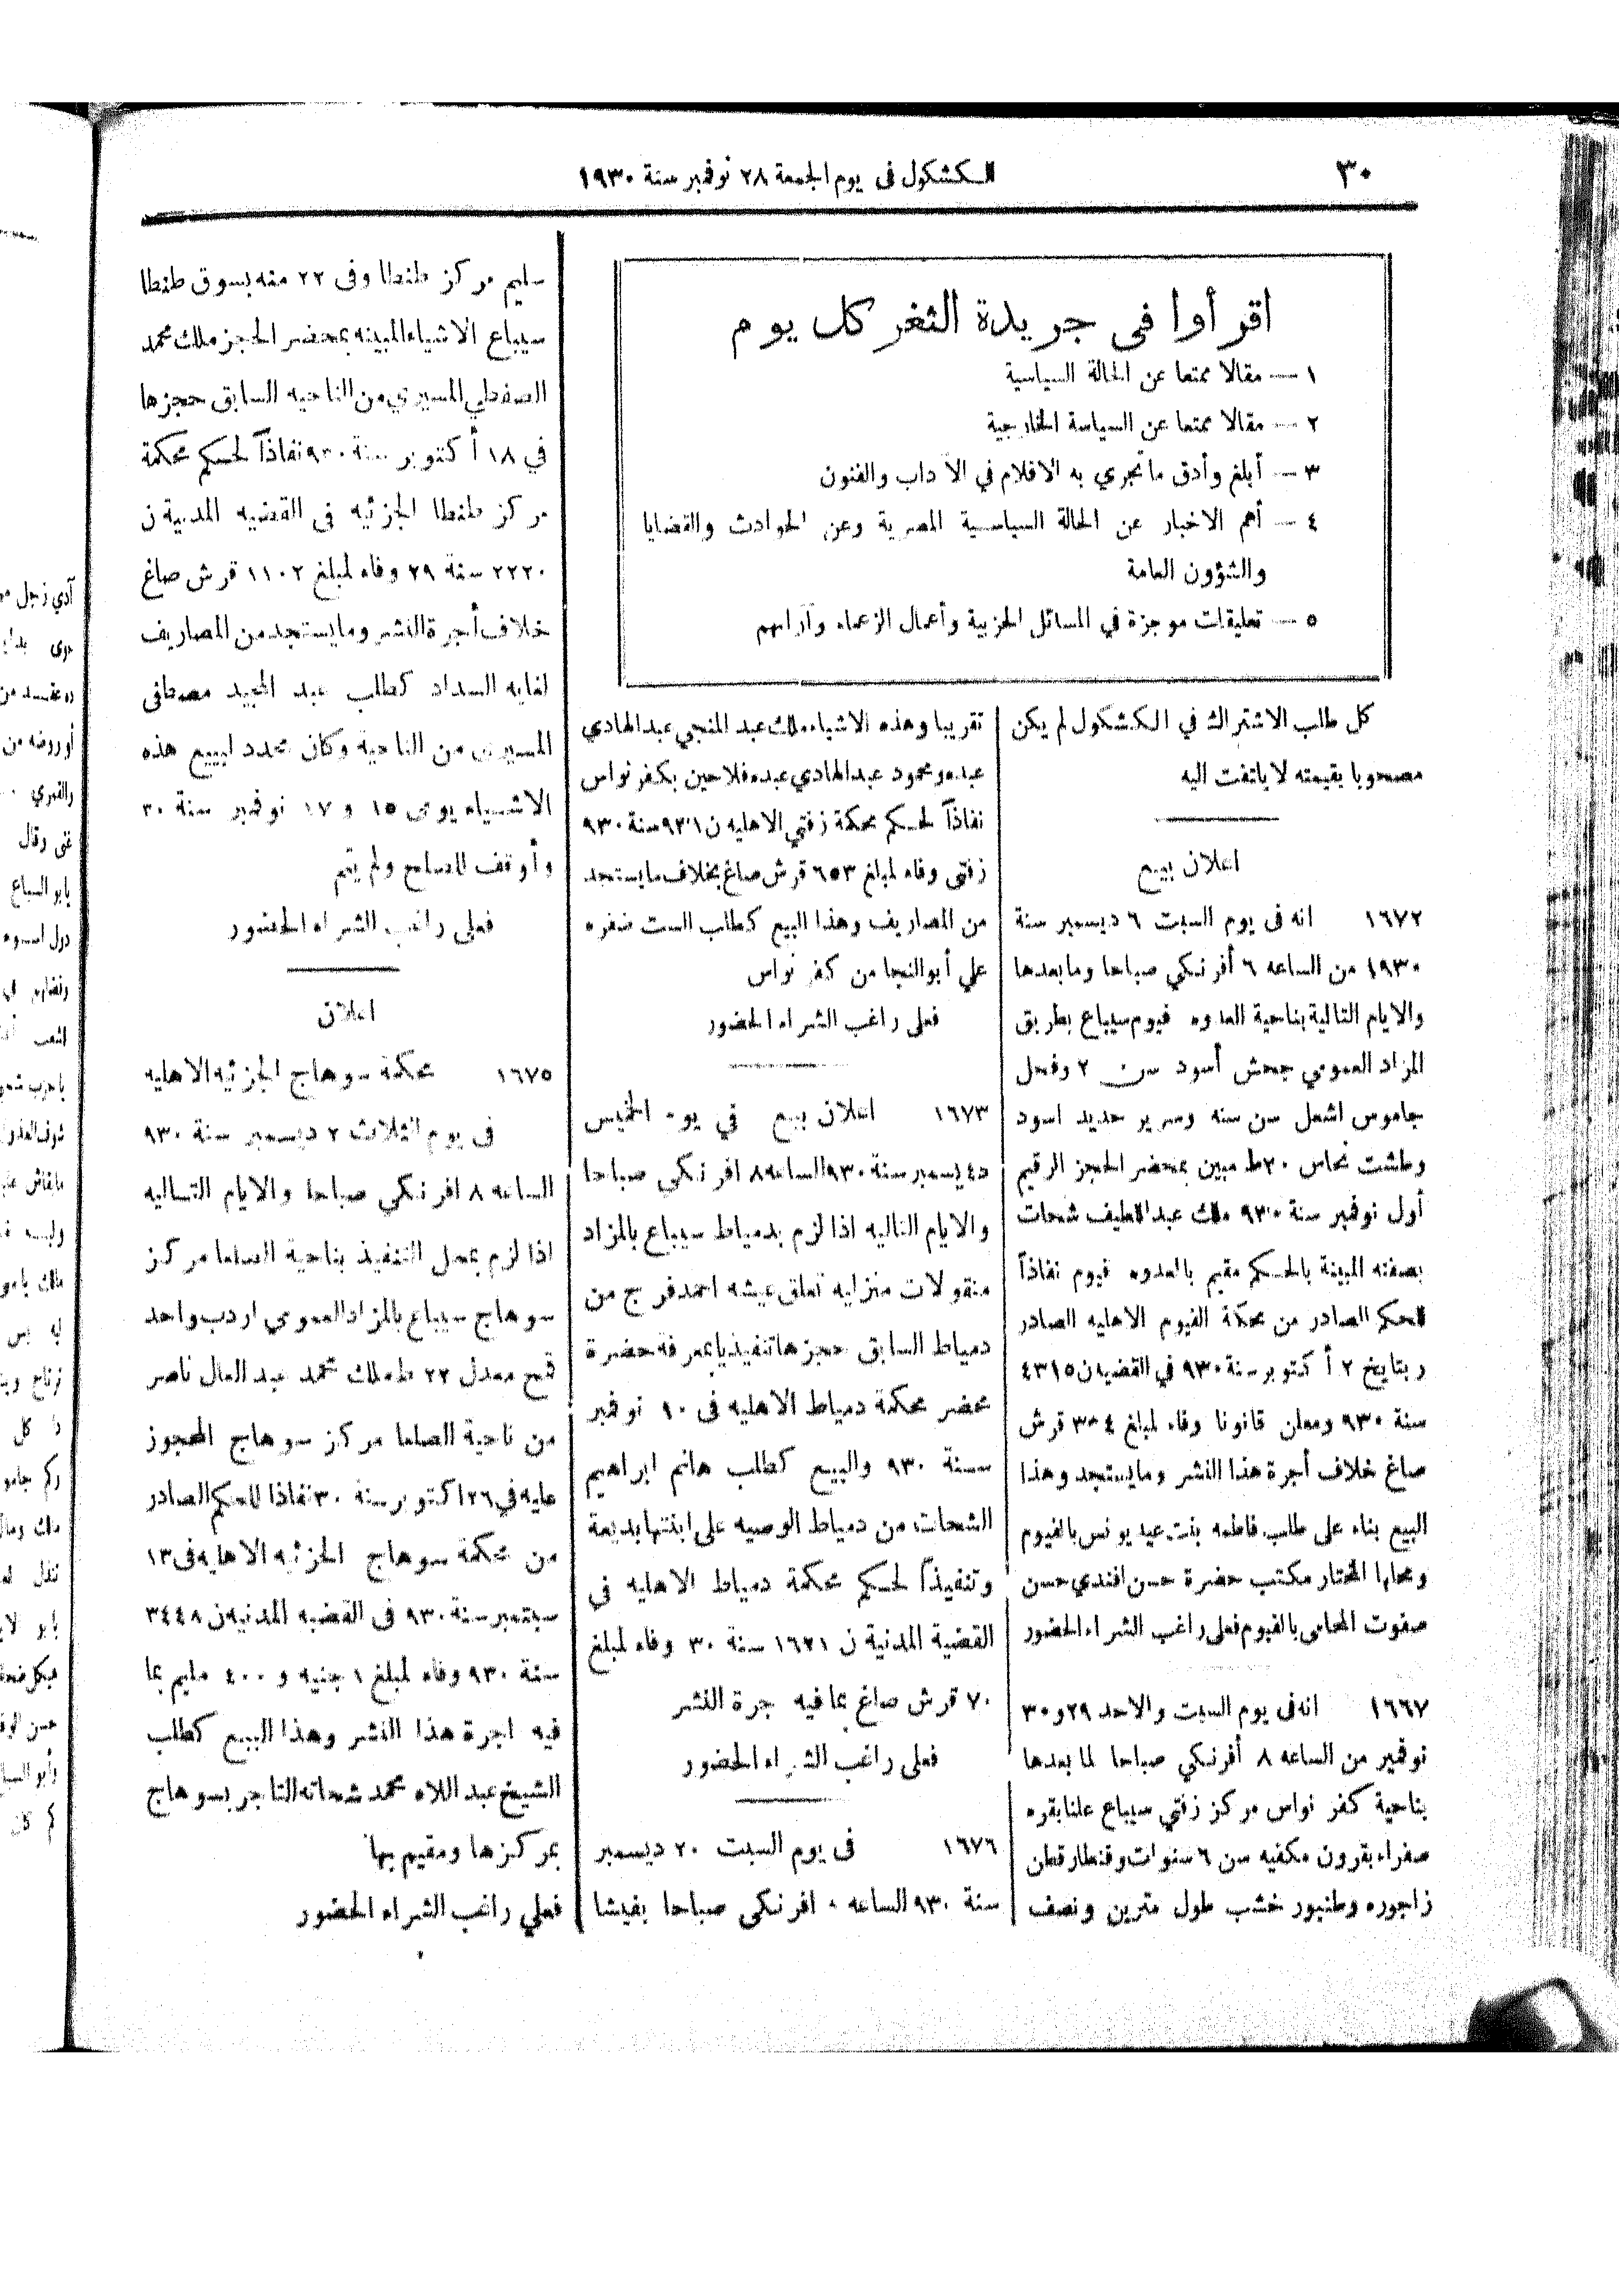 ٣٠
الكشكول فى يوم الجمعة ٢٨ نوفمبر سنة ١٩٣٠
اقرأوا فى جريدة الثغر كل يوم
١ — مقالا ممتعا عن الحالة السياسية
٢ — مقالا ممتعا عن السياسة الخارجية
٣ — أبلغ وأدق ماتجري به الاقلام في الآداب والفنون
٤ — أهم الاخبار عن الحالة السياسية المصرية وعن الحوادث والقضايا
والشؤون العامة
٥ — تعليقات موجزة في المسائل الحزبية وأعمال الزعماء وآرائهم
كل طلب الاشتراك في الكشكول لم يكن
مصحوبا بقيمته لا يلتفت اليه
اعلان بيع
١٦٧٢ انه فى يوم السبت ٦ ديسمبر سنة
١٩٣٠ من الساعه ٦ أفرنكي صباحا وما بعدها
والايام التالية بناحية العدوه فيوم سيباع بطريق
المزاد العمومي جحش أسود سن ٢ وفحل
جاموس اشعل سن سنه وسرير حديد اسود
وطشت نحاس ٢٠ط مبين بمحضر الحجز الرقيم
أول نوفمبر سنة ٩٣٠ ملك عبد اللطيف شحات
بصفته المبينة بالحكم مقيم بالعدوه فيوم نفاذاً
للحكم الصادر من محكمة الفيوم الاهليه الصادر
ربتايخ ٢ أكتوبر سنة ٩٣٠ في القضيه ن ٤٣١٥
سنة ٩٣٠ ومعلن قانونا وفاء لمبلغ قرش
صاغ خلاف أجرة هذا النشر وما يستجد وهذا
البيع بناء على طلب فاطمه بنت عيد يونس بالفيوم
ومحلها المختار مكتب حضرة حسن افندي حسن
صفوت المحامى بالفيوم فعلى راغب الشراء الحضور
١٦٦٧ انه فى يوم السبت والاحد ٢٩ و٣٠
نوفمبر من الساعه ٨ أفرنكي صباحا لما بعدها
بناحية كفر نواس مركز زفتي سيباع علنا بقره
صفراء بقرون مكفيه سن ٦ سنوات وقنطار قطن
زاجوره وطنبور خشب طول مترين ونصف
تقريبا وهذه الاشياء ملك عبد المنجي عبد الهادي
عبده ومحمود عبد الهادي عبده فلاحين بكفر نواس
نفاذاً لحكم محكمة زفتي الاهليه ن ٩٣١ سنة ٩٣٠
زفتى وفاء لمبلغ ٦٥٣ قرش صاغ بخلاف ما يستجد
من المصاريف وهذا البيع كطلب الست ضفره
علي أبو النجا من كفر نواس
فعلى راغب الشراء الحضور
١٦٧٣ اعلان بيع في يوم الخميس
٤ ديسمبر سنة ٩٣٠ الساعه ٨ افرنكي صباحا
والايام التاليه اذا لزم بدمياط سيباع بالمزاد
منقولات منزليه تعلق عيشه احمد فرج من
دمياط السابق حجزها تنفيذيا بمعرفة حضرة
محضر محكمة دمياط الاهليه فى ١٠ نوفمبر
سنة ٩٣٠ والبيع كطلب هانم ابراهيم
الشحات من دمياط الوصيه على ابنتها بديعة
وتنفيذاً لحكم محكمة دمياط الاهليه في
القضية المدنية ن ١٦٢١ سنة ٣٠ وفاء لمبلغ
٧٠ قرش صاغ بما فيه جرة النشر
فعلى راغب الشراء الحضور
١٦٧٦ فى يوم السبت ٢٠ ديسمبر
سنة ٩٣٠ الساعه افرنكى صباحا بفيشا
سليم مركز طنطا وفى ٢٢ منه بسوق طنطا
سيباع الاشياء المبينه بمحضر الحجز ملك محمد
الصفطي المسيرى من الناحيه السابق حجزها
في ١٨ أكتوبر سنة ٩٣٠ نفاذاً لحكم محكمة
مركز طنطا الجزئيه فى القضيه المدنية ن
٢٢٢٠ سنة ٢٩ وفاء لمبلغ ١١٠٢ قرش صاغ
خلاف أجرة النشر وما يستجد من المصاريف
لغاية السداد كطلب عبد المجيد مصطفى
المسيرى من الناحية وكان محدد لبيع هذه
الاشياء يومى ١٥ و ١٧ نوفمبر سنة ٣٠
وأوقف للصلح ولم يتم
فعلى راغب الشراء الحضور
اعلان
١٦٧٥ محكمة سوهاج الجزئيه الاهليه
فى يوم الثلاث ٢ ديسمبر سنة ٩٣٠
الساعه ٨ افرنكي صباحا والايام التساليه
اذا لزم بمحل التنفيذ بناحية الصلعا مركز
سوهاج سيباع بالمزاد العمومي اردب واحد
قمح معدل ٢٢ ط ملك محمد عبد العال ناصر
من ناحية الصلعا مركز سوهاج المحجوز
عليه في ٢٦ اكتوبر سنة ٣٠ نفاذا للحكم الصادر
من محكمة سوهاج الجزئيه الاهليه فى ١٣
سبتمبر سنة ٩٣٠ فى القضيه المدنيه ن ٣٤٤٨
سنة ٩٣٠ وفاء لمبلغ ١ جنيه و ٤٠٠ مليم بما
فيه اجرة هذا النشر وهذا البيع كطلب
الشيخ عبد اللاه محمد شحاته التاجر بسوهاج
بمركزها ومقيم بها
فعلي راغب الشراء الحضور